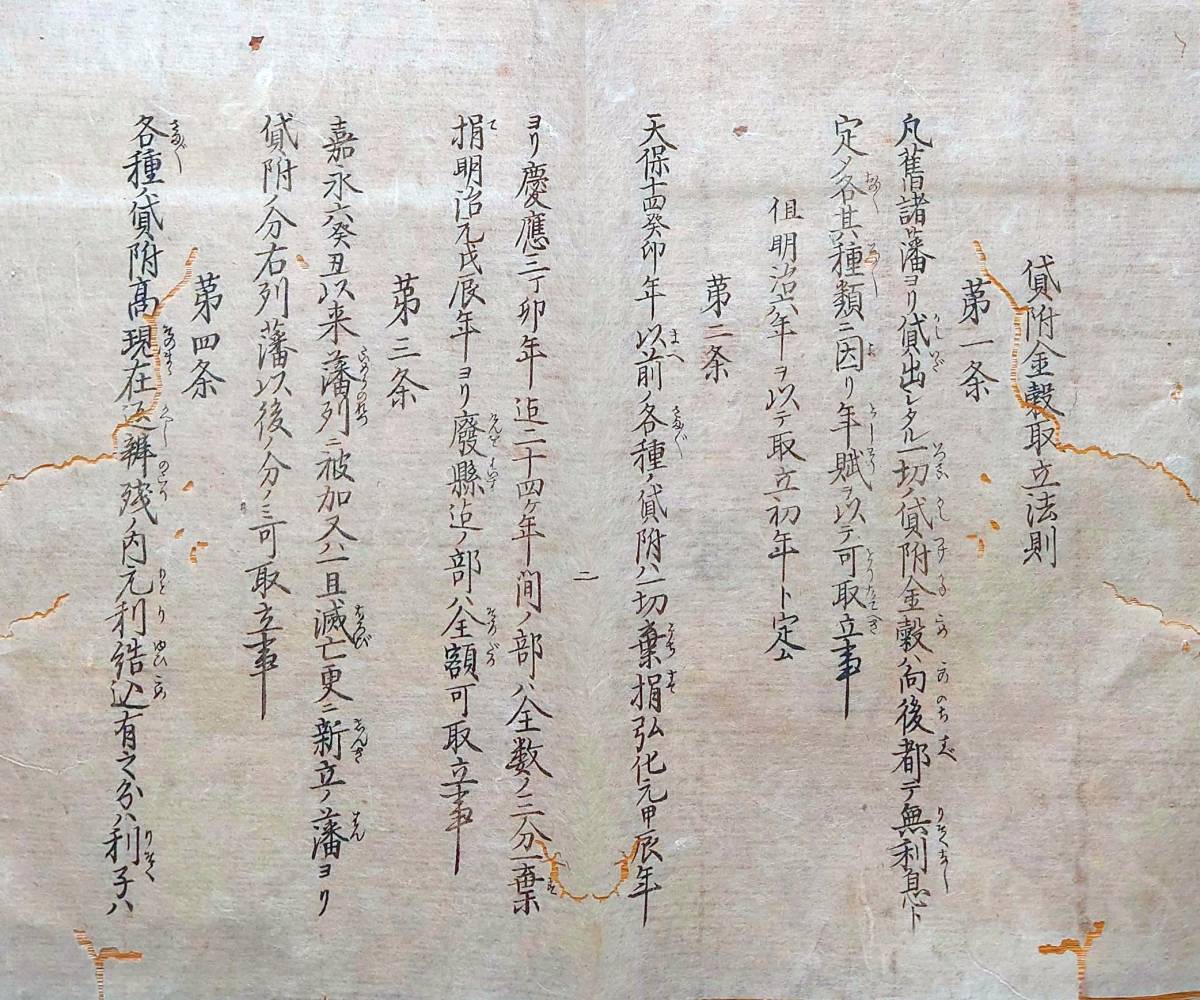 貸附金穀取立法則
第一条
凡舊諸藩ヨリ貸出シタル一切ノ貸附金穀ハ向後都テ無利息ト
定メ各其種類ニ因リ年賦ヲ以テ可取立事
但明治六年ヲ以テ取立初年ト定ム
第二条
天保十四癸卯年以前ノ各種ノ貸附ハ一切棄捐弘化元甲辰年
ヨリ慶應三丁卯年迄二十四ケ年間ノ部ハ全数ノ三分一棄
捐明治元戊辰年ヨリ廢縣迄ノ部ハ全額可取立事
第三条
嘉永六癸丑以来藩列ニ被加又ハ一旦滅亡更ニ新立ノ藩ヨリ
貸附ノ分右列藩以後ノ分ノミ可取立事
第四条
各種ノ貸附高現在返辨残ノ内元利結込有之分ハ利子ハ